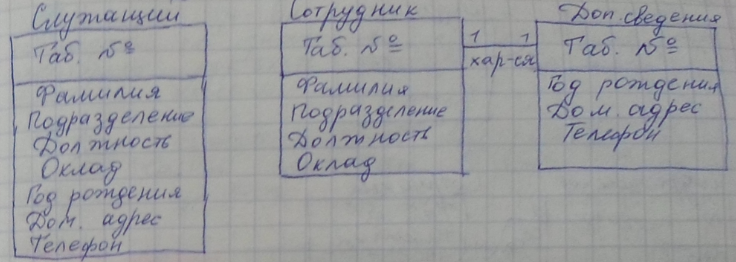 Служащий
Таб. №
Фамилия
Подразделение
Должность
Оклад
Год рождения
Дом. адрес
Телефон
Сотрудник
Таб. №
Фамилия
Подразделение
Должность
Оклад
1 1
хар-ся
Доп. сведения
Таб. №
Год рождения
Дом. адрес
Телефон